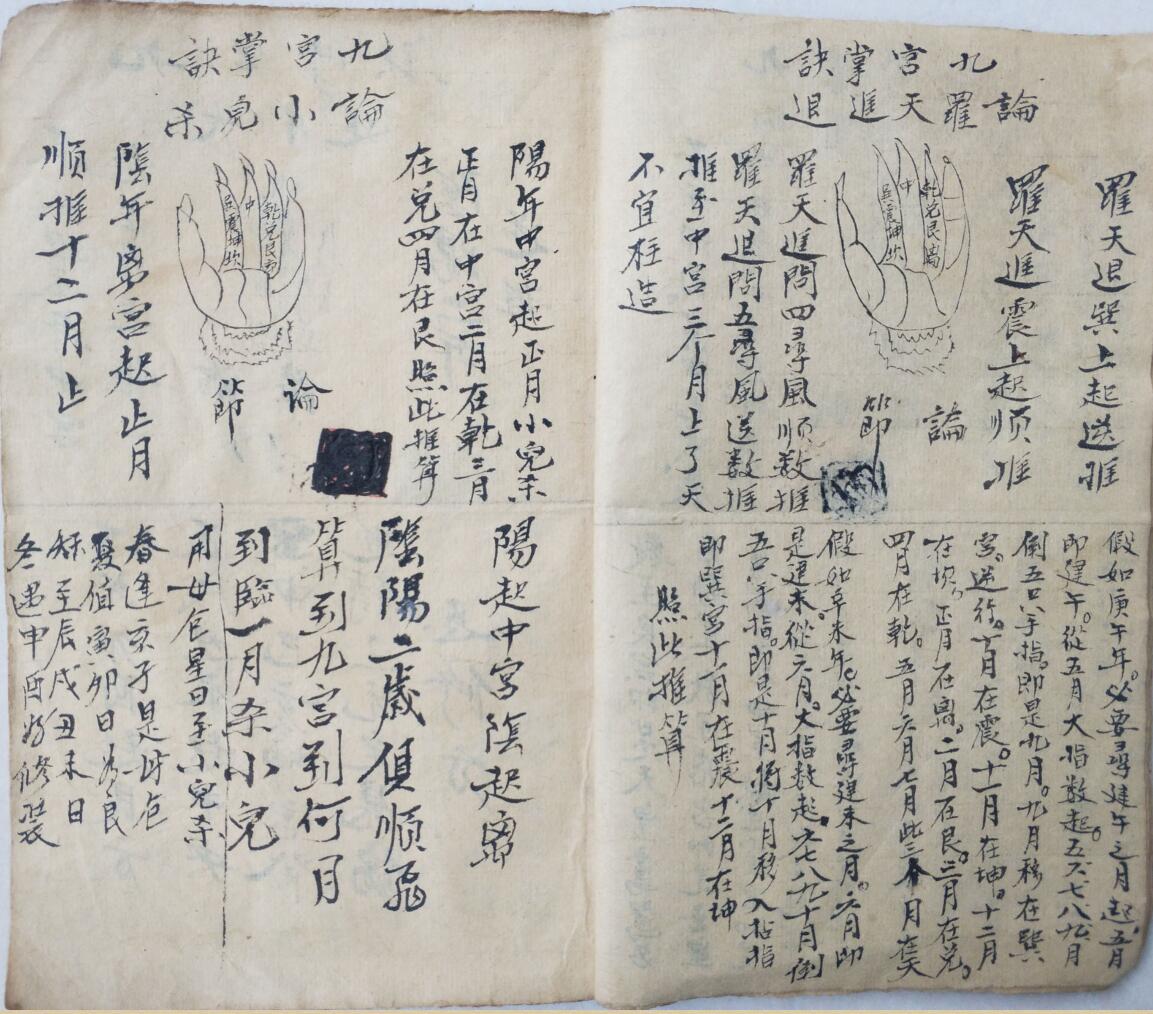 九宮掌訣
論羅天進退
羅天退巽上起送推
羅天進震上起順推
論
節
乾兑艮离
中
巽震坤坎
羅天進問四尋風順数推
羅天退問五尋風送数推
推至中宮三个月上了天
不宜柱造
假如庚午年。必要尋建午之月起。五月
即建午。從五月大指数起。五六七八九月
倒五口八手指。即是九月。九月移在巽
宮。送行。十月在震。十一月在坤。十二月
在坎。正月在离。二月在艮。三月在兑。
四月在乾。五月六月七月此三个月在天
假如辛未年。必要尋建未之月。六月即
是建未。從六月。大指数起。六七八九十月倒
五口八手指。即是十月將十月移入拈指
即巽宮十一月在震十二月在坤
照此推算
九宮掌訣
論小兒杀
陽年中宮起正月小兒杀
正月在中宮二月在乾三月
在兑四月在艮照此推算
乾兑艮离
中
巽震坤坎
論
節
陰年离宮起正月
順推十二月止
陽起中宮陰起离
陰陽二歲俱順飛
算到九宮到何月
到臨一月杀小兒
用廿 星日至小兒杀
春逢亥子是
夏值寅卯日為良
秋至辰戌丑未日
冬遇申酉好修裝